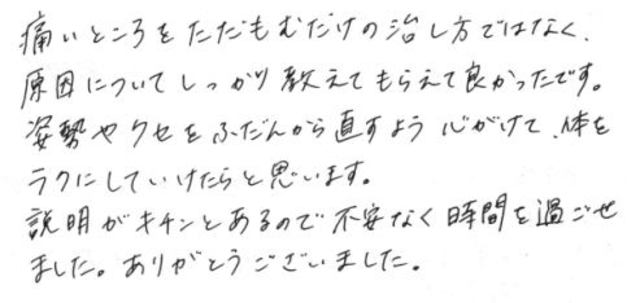 痛いところをただもむだけの治し方ではなく、
原因についてしっかり教えてもらえて良かったです。
姿勢やクセをふだんから直すよう心がけて、体を
ラクにしていけたらと思います。
説明がキチンとあるので不安なく時間を過ごせ
ました。ありがとうございました。